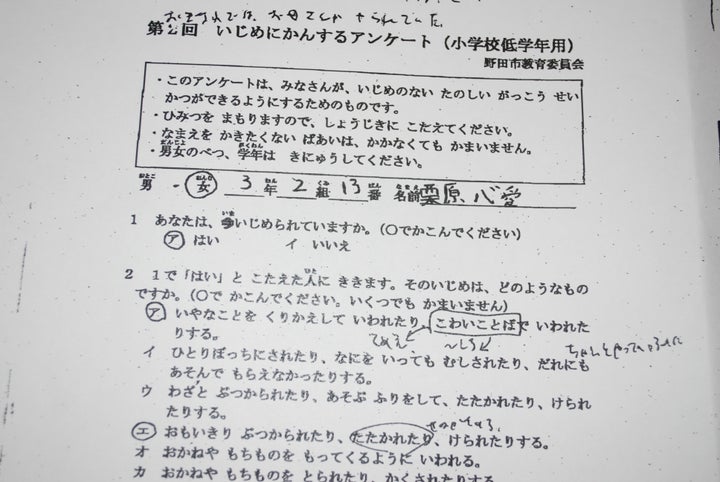 第2回 いじめにかんするアンケート（小学校低学年用）
野田市教育委員会
・このアンケートは、みなさんが、いじめのない たのしい がっこう せい
かつができるようにするためのものです。
・ひみつを まもりますので、しょうじきに こたえてください。
・なまえを かきたくない ばあいは、かかなくても かまいません。
・男女のべつ、学年は きにゅうしてください。
男 ・ 女 3年 2組 13番 名前 栗原 心愛
1 あなたは、今いじめられていますか。（○でかこんでください）
ア はい イ いいえ
2 1で「はい」と こたえた人に ききます。そのいじめは、どのようなもの
ですか。（○で かこんでください。いくつでも かまいません）
ア いやなことを くりかえして いわれたり、こわいことばで いわれた
りする。
イ ひとりぼっちにされたり、なにを いっても むしされたり、だれにも
あそんで もらえなかったりする。
ウ わざと ぶつかられたり、あそぶ ふりをして、たたかれたり、けられ
たりする。
エ おもいきり ぶつかられたり、たたかれたり、けられたりする。
オ おかねや もちものを もってくるように いわれる。
カ おかねや もちものを とられたり、かくされたりする。